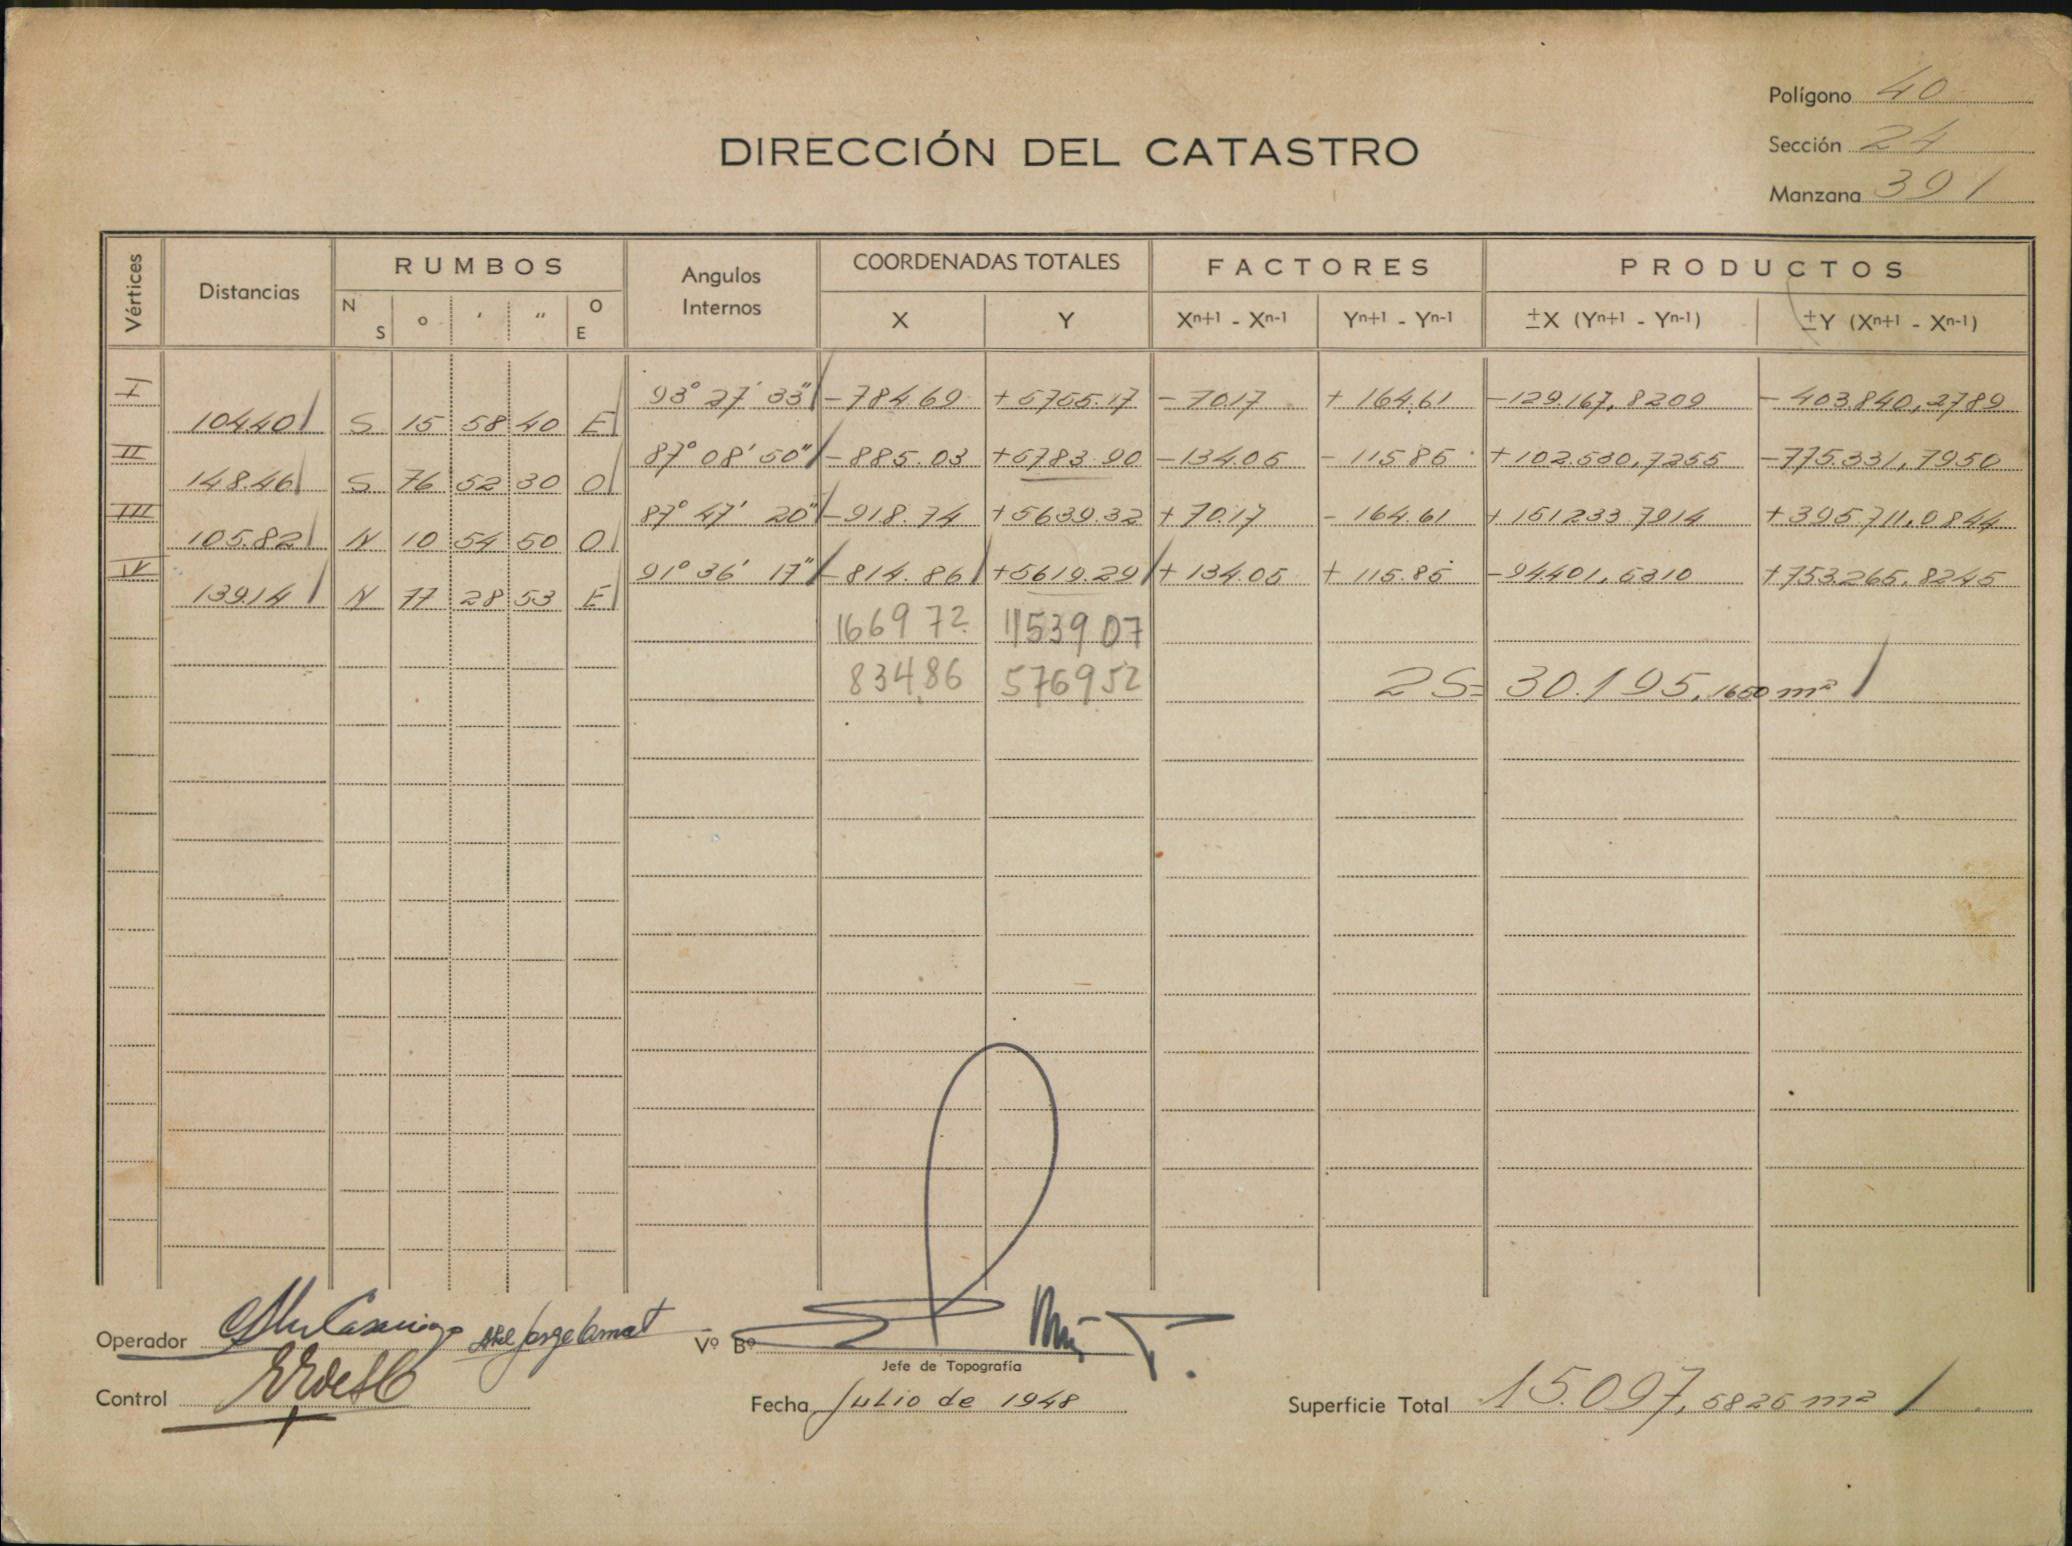 Polígono 40
DIRECCIÓN DEL CATASTRO
Sección 24
Manzana 391
Vértices Distancias RUMBOS Angulos Internos COORDENADAS TOTALES FACTORES PRODUCTOS
N S ° ' " O E X Y Xn+1 - Xn-1 Yn+1 - Yn-1 ±X (Yn+1 - Yn-1) ±Y (Xn+1 - Xn-1)
I 93° 27' 33" -784.69 +5755.17 -70.17 +164.61 -129.167,8209 -403.840,2789
104.40 S 15 58 40 E
II 87° 08' 50" -885.03 +5783.90 -134.05 -115.85 +102.530,7255 -775.331,7950
148.46 S 76 52 30 O
III 87° 47' 20" -918.74 +5639.32 +70.17 -164.61 +151233.7914 +395.711,0844
105.82 N 10 54 50 O
IV 91° 36' 17" -814.86 +5619.29 +134.05 +115.85 -94.401,5310 +753.265,8245
139.14 N 77 28 53 E
166972 1153907
83486 576952 2S= 30.195,1650 m²
Operador
Vº Bº
Jefe de Topografía
Control
Fecha Julio de 1948
Superficie Total 15.097,5825 m²